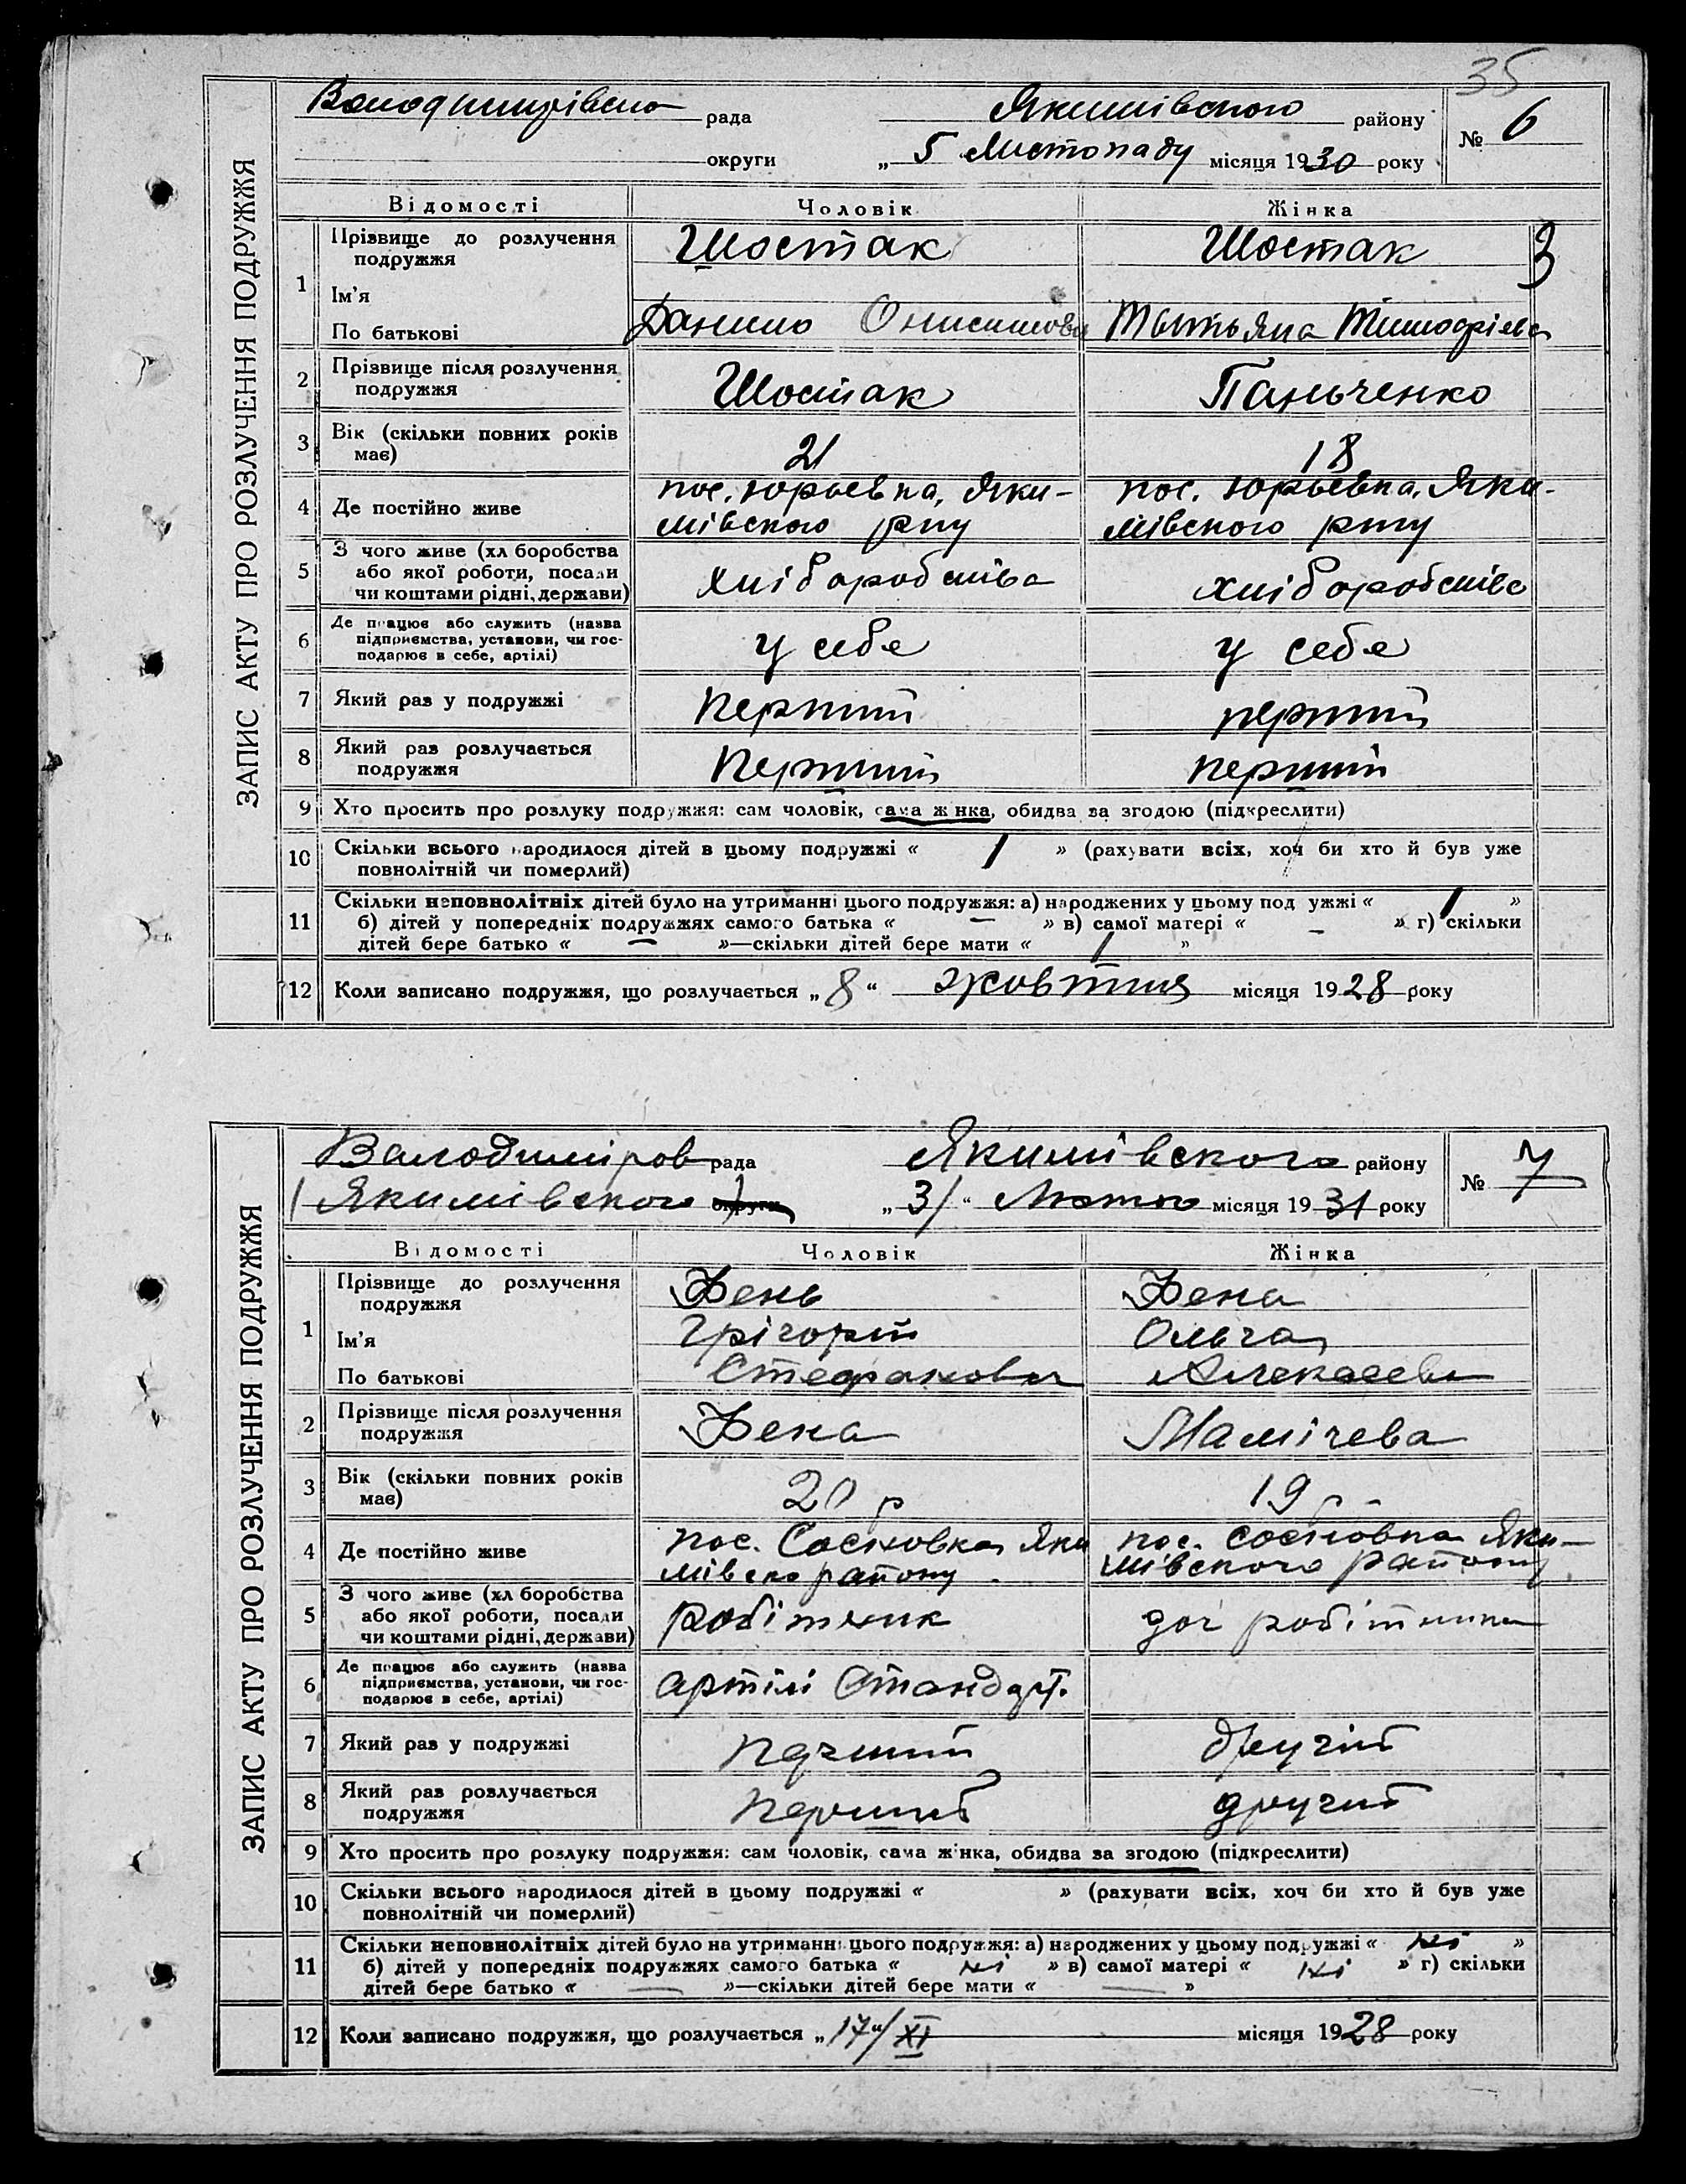 35
ЗАПИС АКТУ ПРО РОЗЛУЧЕННЯ ПОДРУЖЖЯ
Володимирівська рада Якимівського району № 6
округи „ 5 Листопаду місяця 1930 року
Відомості Чоловік Жінка
1 Прізвище до розлучення подружжя Шостак Шостак
Ім'я
По батькові Данило Онисимови Тытьяна Тимофіева
2 Прізвище після розлучення подружжя Шостак Паньченко
3 Вік (скільки повних років має) 21 18
4 Де постійно живе пос. Юрьевка, Яки- пос. Юрьевка, Яки-
мівського рну мівського рну
5 З чого живе (хл боробства або якої роботи, посади чи коштами рідні, держави) хліборобства хліборобства
6 Де працює або служить (назва підприємства, установи, чи господарює в себе, артілі) у себе у себе
7 Який раз у подружжі Перший перший
8 Який раз розлучається подружжя Перший перший
9 Хто просить про розлуку подружжя: сам чоловік, сама жінка, обидва за згодою (підкреслити)
10 Скільки всього народилося дітей в цьому подружжі « 1 » (рахувати всіх, хоч би хто й був уже
повнолітній чи померлий)
11 Скільки неповнолітніх дітей було на утриманні цього подружжя: а) народжених у цьому под ужжі « 1 »
б) дітей у попередніх подружжях самого батька « — » в) самої матері « – » г) скільки
дітей бере батько « — »—скільки дітей бере мати « 1 »
12 Коли записано подружжя, що розлучається „ 8 “ жовтня місяця 1928 року
ЗАПИС АКТУ ПРО РОЗЛУЧЕННЯ ПОДРУЖЖЯ
Володиміров рада Якимівского району № 7
Якимівского округи „ 31 “ Лютого місяця 1931 року
Відомості Чоловік Жінка
1 Прізвище до розлучення подружжя Фень Фена
Ім'я Грігорій Ольга
По батькові Стефанович Алексеевн
2 Прізвище після розлучення подружжя Фена Мамічева
3 Вік (скільки повних років має) 20 р 19 р
4 Де постійно живе пос. Сосновка Яки пос. Сосновка Яки-
мівско району мівского району
5 З чого живе (хл боробства або якої роботи, посади чи коштами рідні, держави) робітник доч робітника
6 Де працює або служить (назва підприємства, установи, чи господарює в себе, артілі) артілі Стандарт.
7 Який раз у подружжі перший другий
8 Який раз розлучається подружжя перший другий
9 Хто просить про розлуку подружжя: сам чоловік, сама жінка, обидва за згодою (підкреслити)
10 Скільки всього народилося дітей в цьому подружжі « » (рахувати всіх, хоч би хто й був уже
повнолітній чи померлий)
11 Скільки неповнолітніх дітей було на утриманні цього подружжя: а) народжених у цьому подружжі « ні »
б) дітей у попередніх подружжях самого батька « ні » в) самої матері « ні » г) скільки
дітей бере батько « — »—скільки дітей бере мати « — »
12 Коли записано подружжя, що розлучається „ 17“/XI місяця 1928 року